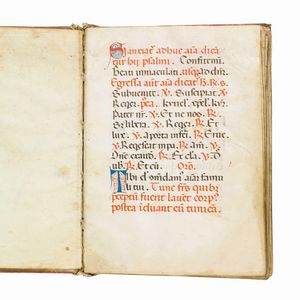 Si anxiat̄ adhuc aīa dicā
tur hij psalmi. Confitemī
Beati inmaculati usq; ad dn̄m.
Egressa aūt aīa dicat̄ hoc R. S.
Subuenite. V. Suscipiat.
Reqeȝ. p̄ca. kyriel. xp̄el. ky
Pater nr̄. V. Et ne nos. R.
Sȝ libera. V. Reqeȝ. R. Et
lux. V. a porta inferi. R. Erue.
V. Reqescat in pa. R. am̄. V.
Dn̄e exaudi. R. Et cla. V. D.
ub. R. Et cū. Orō.
Tibi dn̄e cōmendam̄ aīam famu
li tui. Tunc frs̄ quibȝ
p̄ceptū fuerit lauēt corpȝ
postea iduant eū tunica.